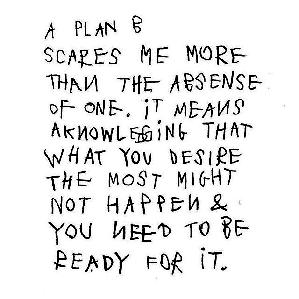 A PLAN B
SCARES ME MORE
THAN THE ABSENSE
OF ONE. IT MEANS
AKNOWLEGING THAT
WHAT YOU DESIRE
THE MOST MIGHT
NOT HAPPEN &
YOU NEED TO BE
READY FOR IT.